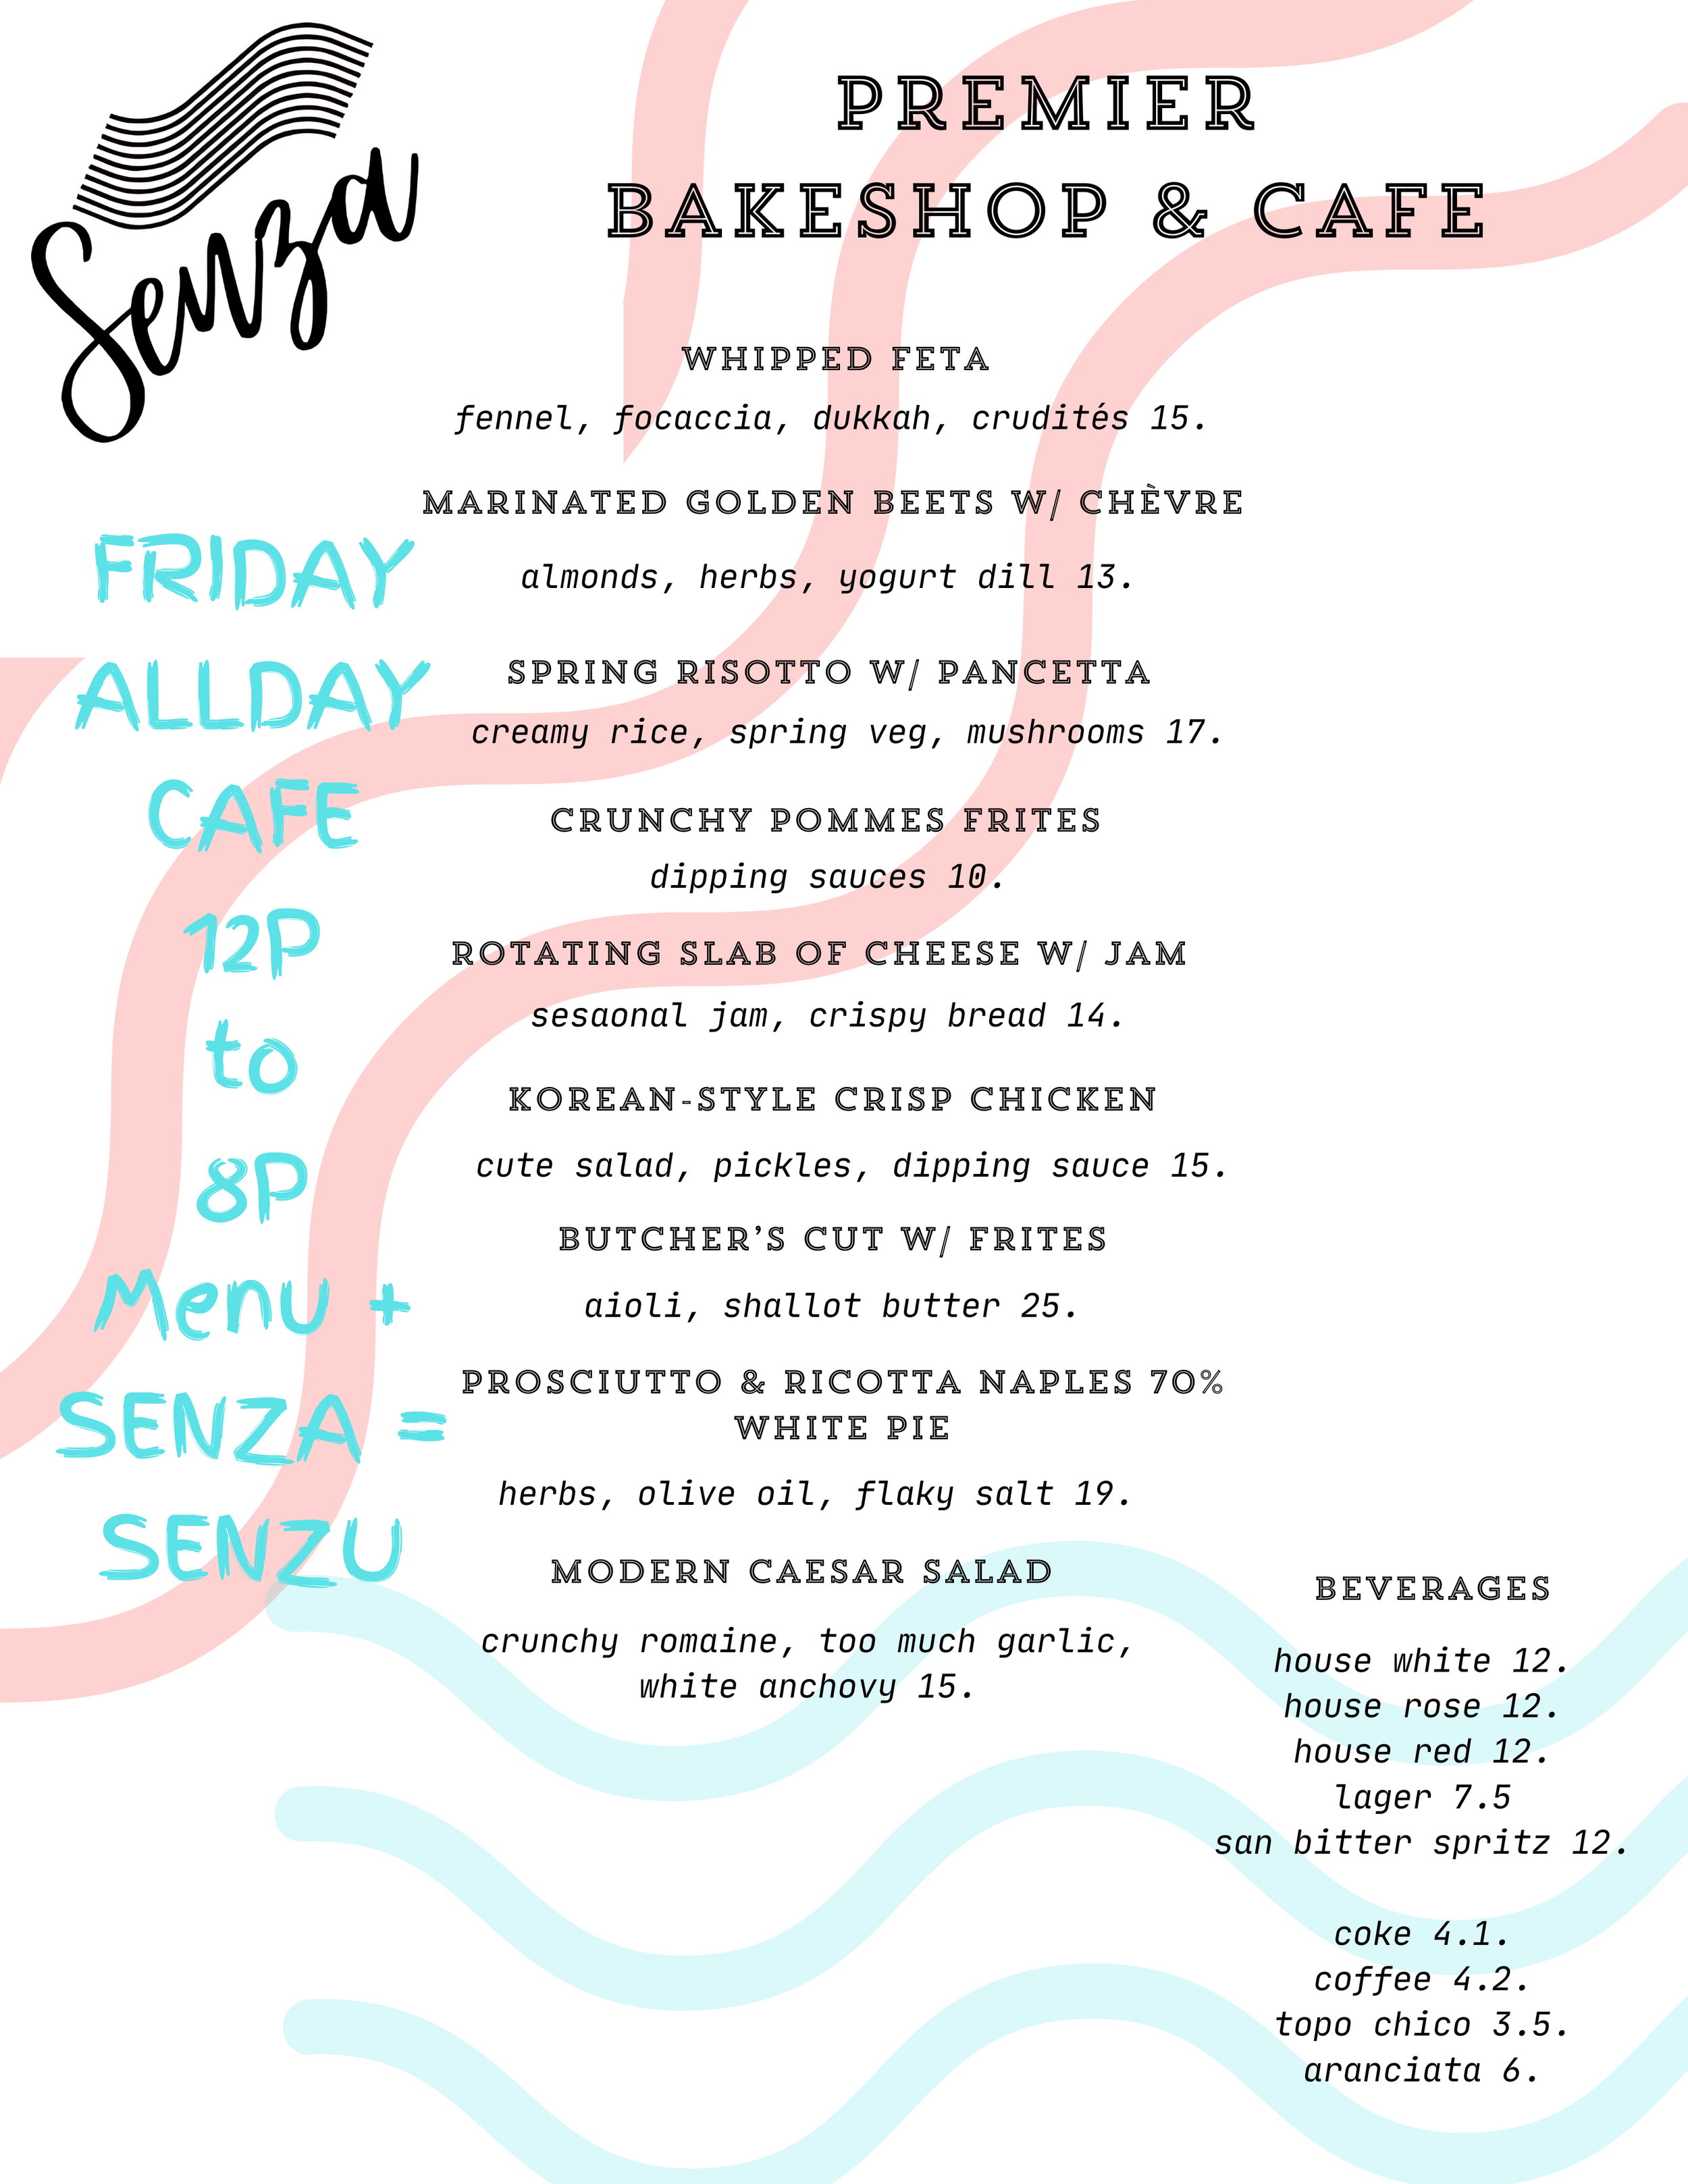 Senza
PREMIER
BAKESHOP & CAFE
FRIDAY
ALLDAY
CAFE
12P
to
8P
Menu +
SENZA =
SENZU
WHIPPED FETA
fennel, focaccia, dukkah, crudités 15.
MARINATED GOLDEN BEETS W/ CHÈVRE
almonds, herbs, yogurt dill 13.
SPRING RISOTTO W/ PANCETTA
creamy rice, spring veg, mushrooms 17.
CRUNCHY POMMES FRITES
dipping sauces 10.
ROTATING SLAB OF CHEESE W/ JAM
sesaonal jam, crispy bread 14.
KOREAN-STYLE CRISP CHICKEN
cute salad, pickles, dipping sauce 15.
BUTCHER’S CUT W/ FRITES
aioli, shallot butter 25.
PROSCIUTTO & RICOTTA NAPLES 70%
WHITE PIE
herbs, olive oil, flaky salt 19.
MODERN CAESAR SALAD
crunchy romaine, too much garlic,
white anchovy 15.
BEVERAGES
house white 12.
house rose 12.
house red 12.
lager 7.5
san bitter spritz 12.
coke 4.1.
coffee 4.2.
topo chico 3.5.
aranciata 6.